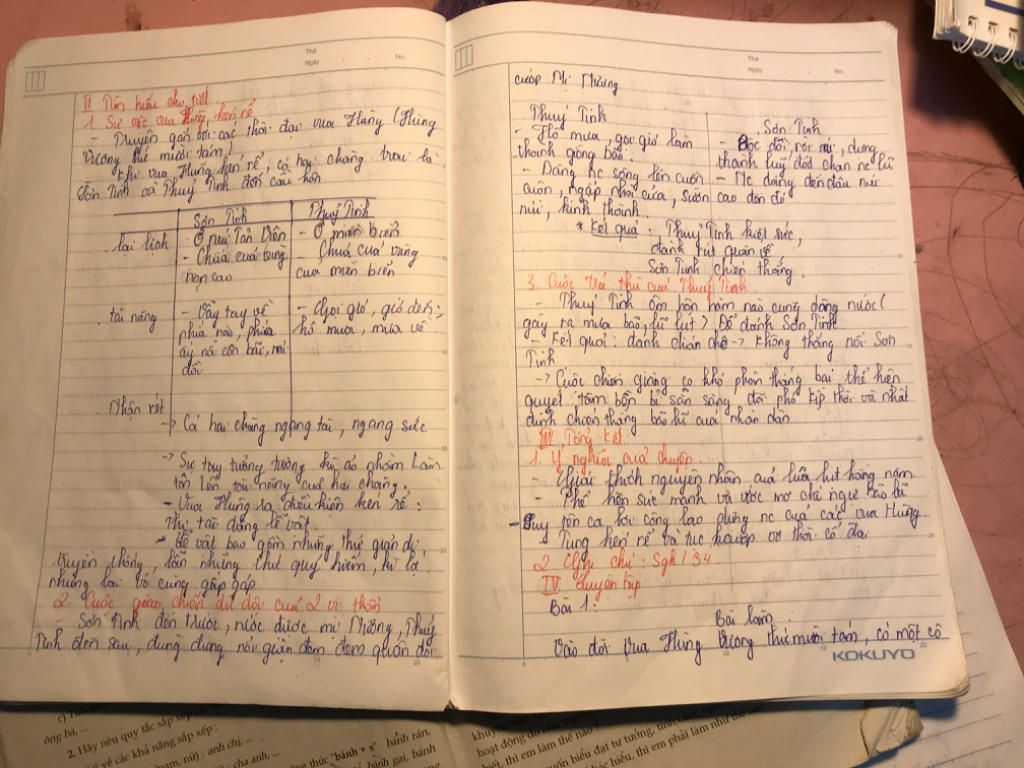 Thứ
Ngày
No.
II Tìm hiểu chi tiết
1. Sự việc vua Hùng kén rể
Truyện gắn với các thời đại vua Hùng (Hùng
Vương thứ mười tám)
Khi vua Hùng kén rể, có hai chàng trai là
Sơn Tinh và Thuỷ Tinh đến cầu hôn
Sơn Tinh
Thuỷ Tinh
lai lịch
- Ở núi Tản Viên
- Ở miền biển
- Chúa của vùng
- Chúa của vùng
non cao
của miền biển
tài năng
- Vẫy tay về
- Gọi gió, gió đến;
phía nào, phía
hô mưa, mưa về
ấy nổi cồn bãi, núi
đồi
Nhận xét
-> Cả hai chàng ngang tài, ngang sức
-> Sự tưởng tượng kì ảo nhằm làm
tôn lên tài năng của hai chàng.
- Vua Hùng ra điều kiện kén rể:
Thi tài dâng lễ vật
- Lễ vật bao gồm những thứ giản dị,
truyền thống, lẫn những thứ quý hiếm, kì lạ
nhưng lại vô cùng gấp gáp
2. Cuộc giao chiến dữ dội của 2 vị thần
- Sơn Tinh đến trước, rước được mị Nương, Thuỷ
Tinh đến sau, đùng đùng nổi giận đem quân đòi
Thứ
Ngày
No.
cướp Mị Nương
Thuỷ Tinh
Sơn Tinh
- Hô mưa, gọi gió làm
- Bốc đồi, rời núi, dựng
thành giông bão.
thành luỹ đất chặn nc lũ
- Dâng nc sông lên cuồn
- Nc dâng đến đâu núi
cuộn, ngập nhà cửa, sườn
cao đến đó
núi, kinh thành.
* Kết quả: Thuỷ Tinh kiệt sức,
đành rút quân về
Sơn Tinh chiến thắng.
3. Cuộc trả thù của Thuỷ Tinh
- Thuỷ Tinh ôm hận hàm nào cũng dâng nước (
gây ra mưa bão, lũ lụt) Để đánh Sơn Tinh
- Kết quả: đánh chán chê -> không thắng nổi Sơn
Tinh
-> Cuộc chiến giằng co khó phân thắng bại thể hiện
quyết tâm bền bỉ sẵn sàng đối phó kịp thời và nhất
định chiến thắng bão lũ của nhân dân
III Tổng kết
1. Ý nghĩa của truyện
- Giải thích nguyên nhân của lũ lụt hàng năm.
- Thể hiện sức mạnh và ước mơ chế ngự bão lũ
- Suy tôn ca ngợi công lao dựng nc của các vua Hùng
kén rể và tục thời cổ đại
2. Ghi chú: Sgk / 34
IV Luyện tập
Bài 1:
Bài làm
Vào đời Vua Hùng Vương thứ mười tám, có một cô
KOKUYO
ông bà, ...
2. Hãy nêu quy tắc sắp xếp
khả năng sắp xếp :
nữ) : anh chị, ...
: cha anh, ...
thức "bánh + x" : bánh rán,
bánh gai, bánh
hoạt động đó
thì em làm thế nào
muốn biểu đạt tư tưởng, tình cảm,
hiểu, thì em phải làm như thế nào